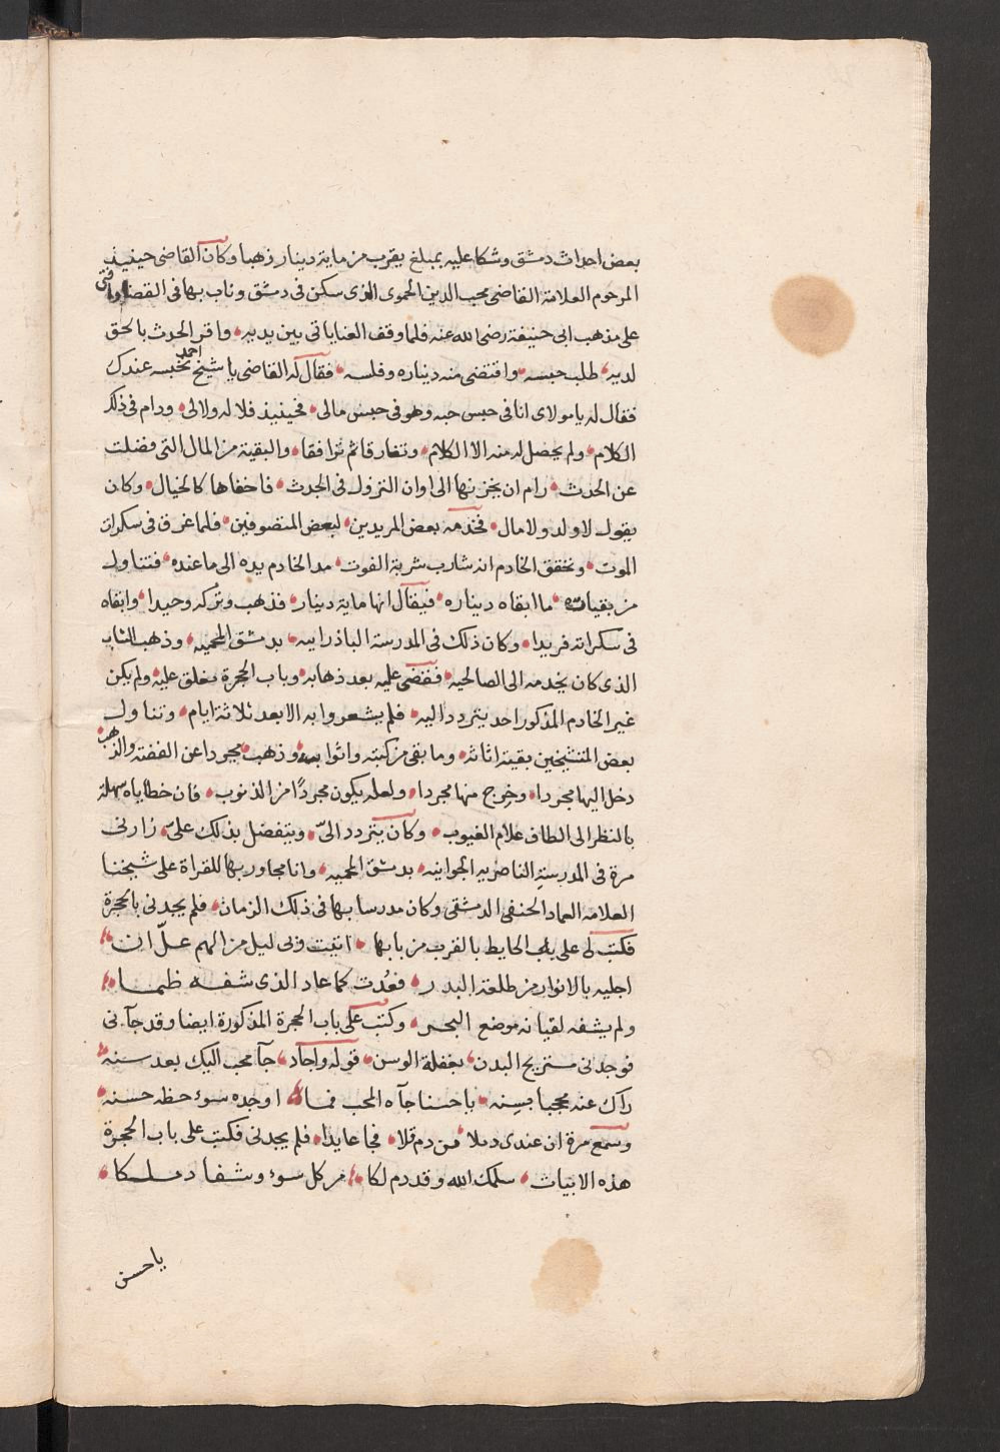 بعض احداث دمشق وشكا عليه بمبلغ يقرب من ماية دينار ذهبا وكان القاضى حينيذ
المرحوم العلامة القاضى محب الدين الحموى الذى سكن فى دمشق وناب بها فى القضا وافتى
على مذهب ابى حنيفة رضى الله عنه فلما وقف العناياتى بين يديه واقر الحدث بالحق
لديه طلب حبسه واقتضى منه ديناره وفلسه فقال له القاضى يا شيخ احمد تحبسه عندك
فقال له يا مولاى انا فى حبس حبه وهو فى حبس مالى فحينيذ فلا له ولا لى ودام فى ذلك
الكلام ولم يحصل له منه الا الكلام وتفارقا ثم ترافقا والبقية من المال التى فضلت
عن الحدث رام ان يخزنها الى اوان النزول فى الجدث فاخفاها كالخيال وكان
يقول لا ولد ولا مال فخدمه بعض المريدين لبعض المتصوفين فلما غرق فى سكرات
الموت وتحقق الخادم انه شارب شربة الفوت مد الخادم يده الى ما عنده فتناول
من بقياته ما ابقاه ديناره فيقال انها ماية دينار فذهب وتركه وحيدا وابقاه
فى سكراته فريدا وكان ذلك فى المدرسة الباذرايية بدمشق المحمية وذهب الشاب
الذى كان يخدمه الى الصالحية فقضى عليه بعد ذهابه وباب الحجرة مغلق عليه ولم يكن
غير الخادم المذكور احد يتردد اليه فلم يشعروا به الا بعد ثلاثة ايام وتناول
بعض المتشيخين بقية اثاثه وما بقى من كتبه واثوابه وذهب مجردا عن الفضة والذهب
دخل اليها مجردا وخرج منها مجردا ولعله يكون مجردًا من الذنوب فان خطاياه سهلة
بالنظر الى الطاف علام الغيوب وكان يتردد الىّ ويتفضل بذلك علىّ زارنى
مرة فى المدرسة الناصريه الجوانيه بدمشق المحميه وانا مجاور بها للقراة على شيخنا
العلامه العماد الحنفى الدمشقى وكان مدرسا بها فى ذلك الزمان فلم يجدنى بالحجرة
فكتب لى على الحايط بالقرب من بابها اتيت وبى ليل من الهم علّ ان
اجليه بالانوار من طلعة البدر فعُدت كما عاد الذى شفه ظما
ولم يشفه لقيانه موضع البحر وكتب على باب الحجرة المذكورة ايضا وقد جآنى
فوجدنى مستريح البدن بغفلة الوسن قوله واجاد جآ محب اليك بعد سنه
راك عنه محجبا بسنه يا حسنا جآه المحب فما اوجده سوء حظه حسنه
وسمع مرة ان عندى دملا فجا عايدا فلم يجدنى فكتب على باب الحجرة
هذه الابيات سلمك الله وقد دم لكا من كل سوء وشفا دملكا
يا حسن